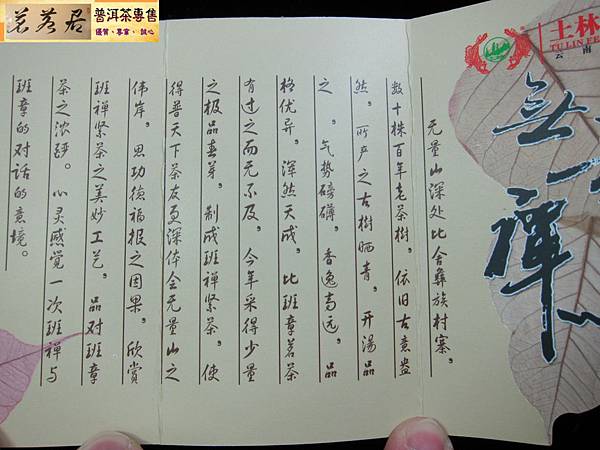 茗茶居
普洱茶專售
優質、專業、誠心
土林
TULIN FE
云 南
無
禪
元量山深处比舍彝族村寨,
数十株百年老茶樹,依旧古意盎
然,所产之古樹晒青,开湯品
之,气势磅礴,香逸高远,品
格优异,浑然天成,比班章茗茶
有过之而无不及,今年采得少量
之极品春芽,制成班禅紧茶,使
得普天下茶友更深体会无量山之
伟岸,思功德福报之因果,欣赏
班禅紧茶之美妙工艺,品对班章
茶之浓酽。心灵感觉一次班禅与
班章的对话的意境。